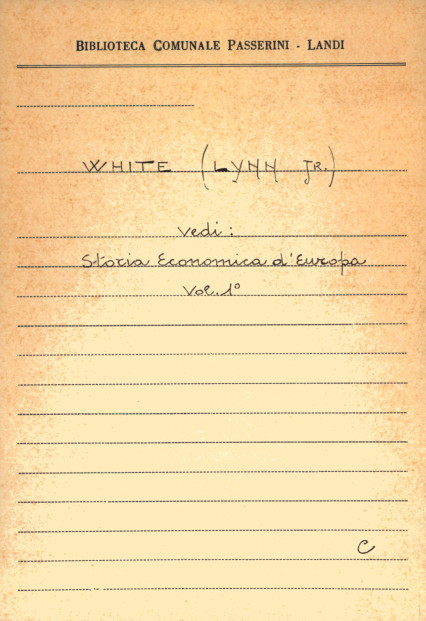 BIBLIOTECA COMUNALE PASSERINI - LANDI
WHITE (LYNN JR.)
Vedi:
Storia Economica d'Europa
Vol. 1°
C